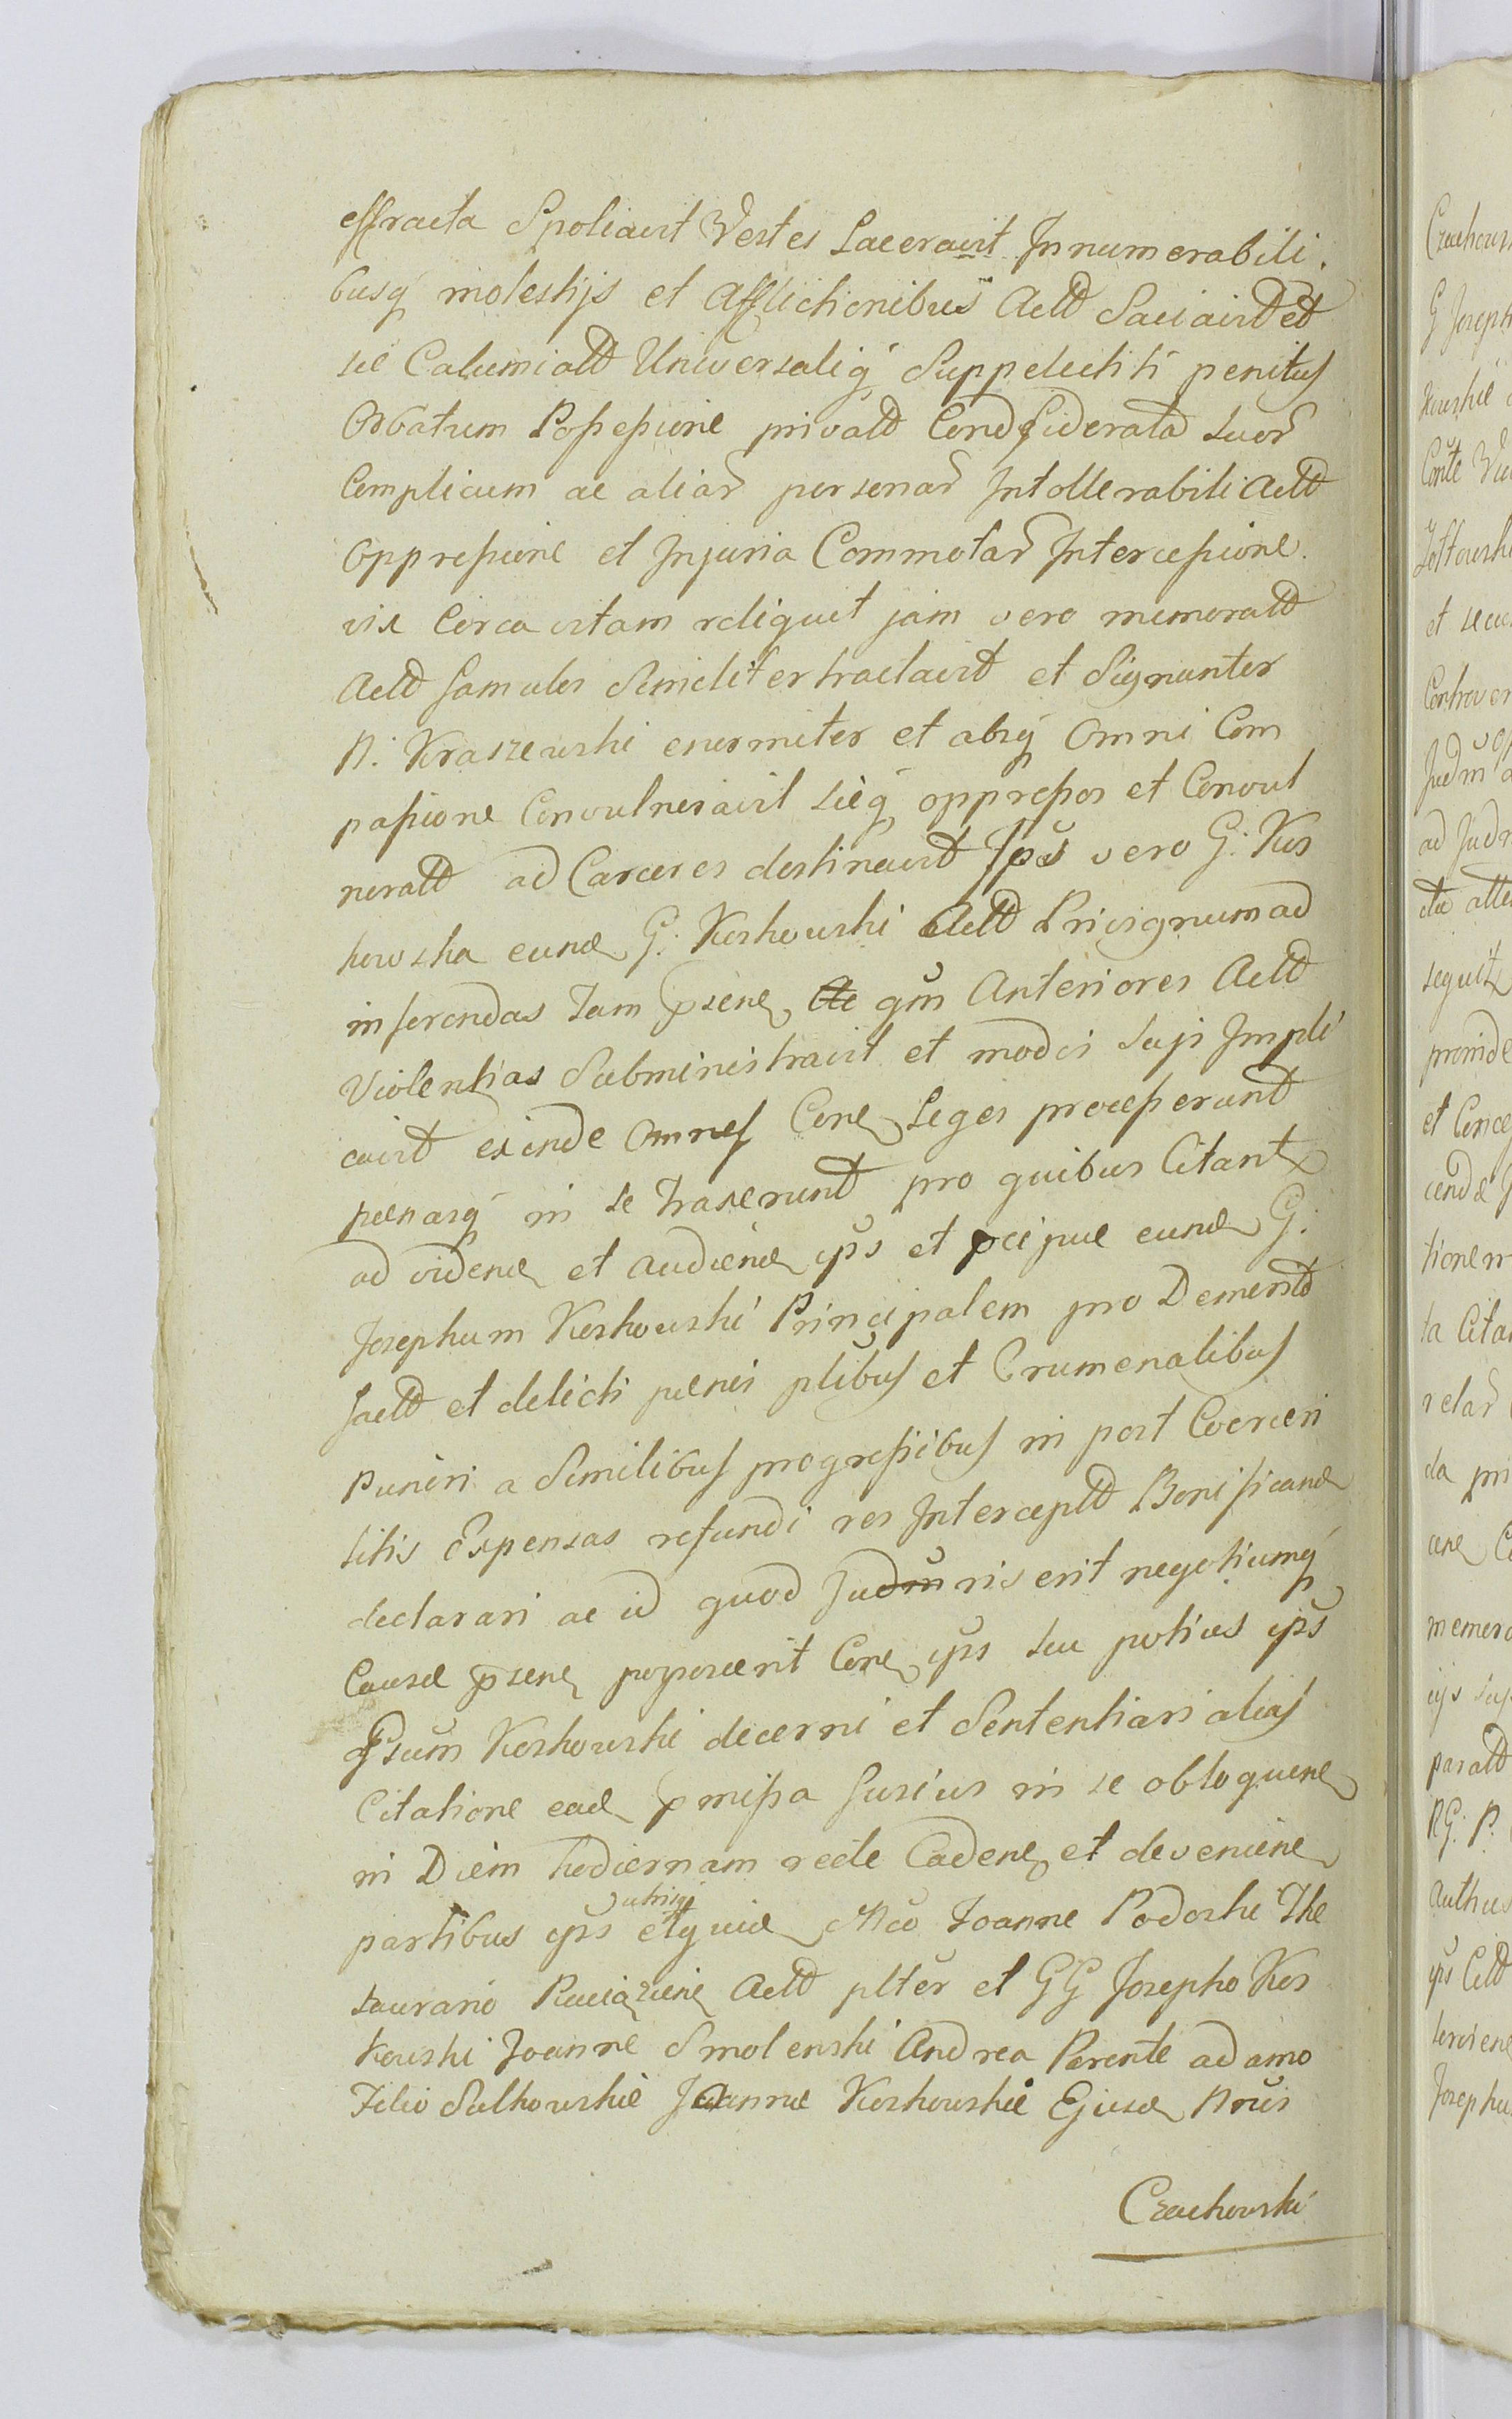 effracta Spoliavit Vestes Laceravit Innumerabili.
busq molestijs et Afflictionibus Actt Saciavit et
sic Calumiatt Universaliq Suppelectili penitus
Orbatum Possessione privatt Confederata Suor
Complicum ac aliar personar Intollerabili Actt
Oppressione et Injuria Commotar Intercessione
vix Circa vitam reliquit jam vero memoratt
Actt famulos Similiter tractavit et Signanter
N: Kraszewski enormiter et absq Omni Com
passione Convulneravit sicq oppressos et Convul
neratt ad Carceres destinavit Ips vero G: Kos
kowska eund G: Koskowski Actt Privignum ad
inferendas Tam psen qm Anteriores Actt
Violentias Subministravit et modis suis Impli
cavit exinde Omnes Con Leges processerunt
penasq in se Traxerunt pro quibus Citant
ad vidend et audiend ips et pcipue eund G:
Josephum Koskowski Principalem pro Demerit
factt et delicti penis plibus et Crumenalibus
Puniri a Similibus progressibus in post Coerceri
Litis Expensas refundi res Interceptt Bonificand
declarari ac id quod Jud ris erit negotiumq
Causæ psen poposcerit Con ips seu potius ips
Gsum Koskowski decerni et Sententiari alias
Citatione ead pmissa fusius in se obloquen
in Diem hodiernam recte Caden et devenien
utrisq
partibus ips Mco Joanne Podoski The
saurario Raciązien Actt plter et GG Josepho Kos
kowski Joanne Smolenski Andrea Parente adamo
Filio Sulkowskie Joanna Koskowskie Ejusd Nris
Czachowski
Czachows
G Joseph
Conte
et
ad Jud
seguit
et Conce
ta Cita
da pri
memora
paratt
Joseph